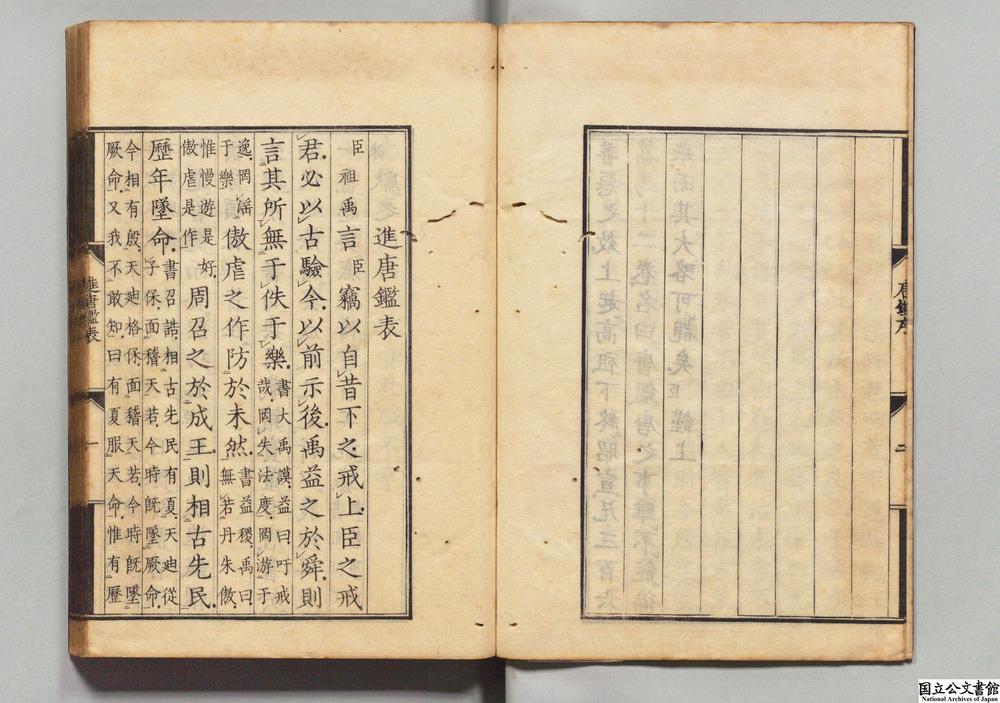 唐鑑序
二
進唐鑑表
臣祖禹言臣竊以自昔下之戒上臣之戒
君必以古驗今以前示後禹益之於舜則
言其所無于佚于樂書大禹謨益曰吁戒哉罔失法度罔游于
逸罔滛于樂傲虐之作防於未然書益稷禹曰無若丹朱傲
惟慢遊是好傲虐是作周召之於成王則相古先民
歷年墜命書召誥相古先民有夏天迪從子保面稽天若今時旣墜厥命
今相有殷天迪格保面稽天若今時旣墜
厥命又我不敢知曰有夏服天命惟有歷
進唐鑑表
一
国立公文書館
National Archives of Japan